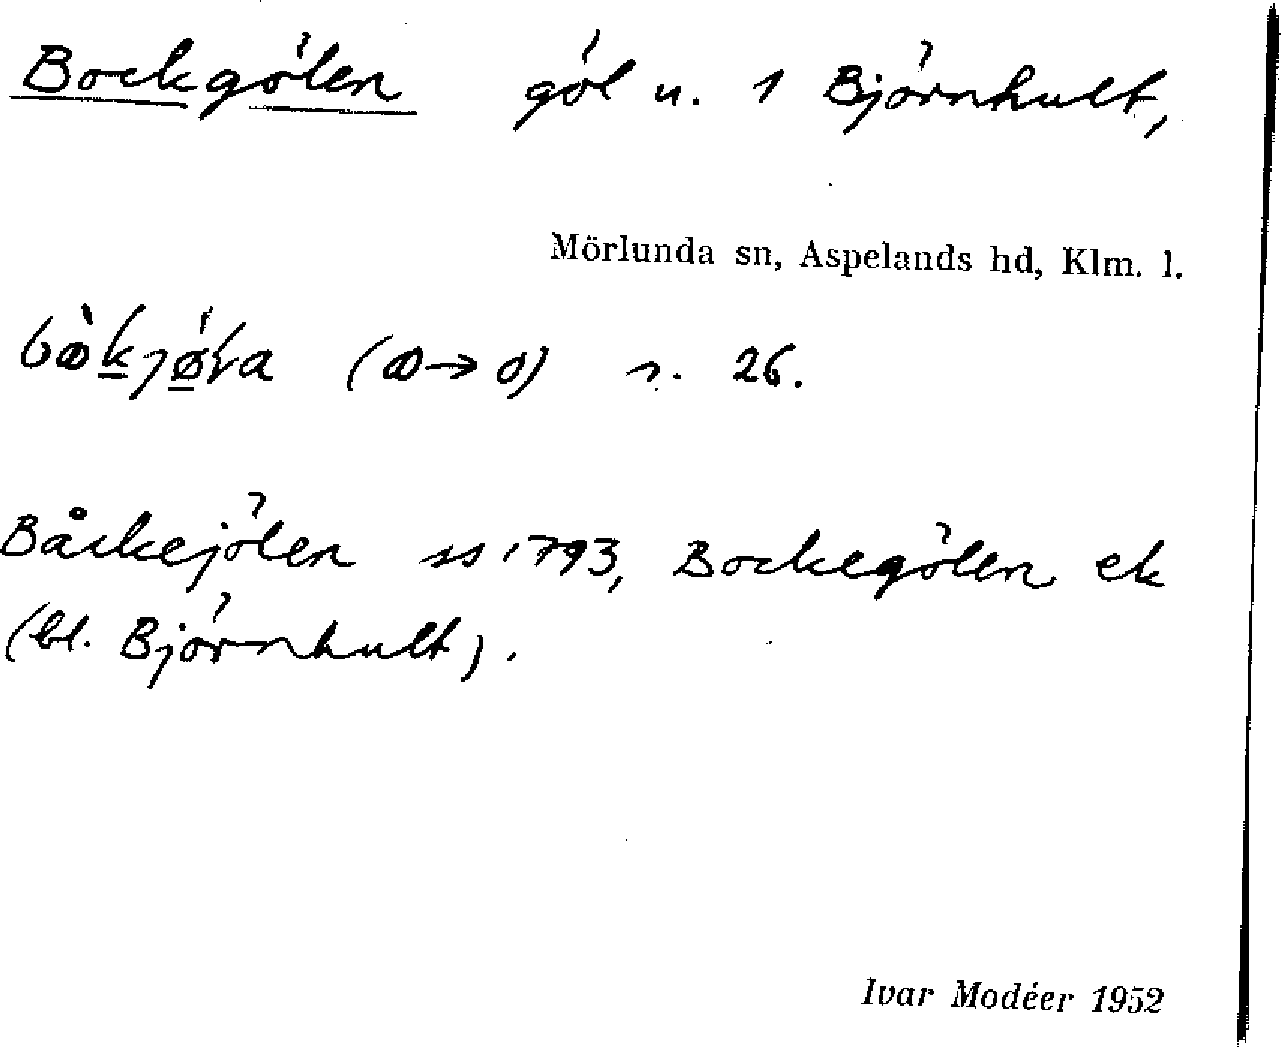 Bockgölen göl u. 1 Björnhult,
Mörlunda sn, Aspelands hd, Klm. l.
(ꝏ→o) s. 26.
Båckejölen ss 1793, Bockegölen ek
(bl. Björnhult).
Ivar Modéer 1952